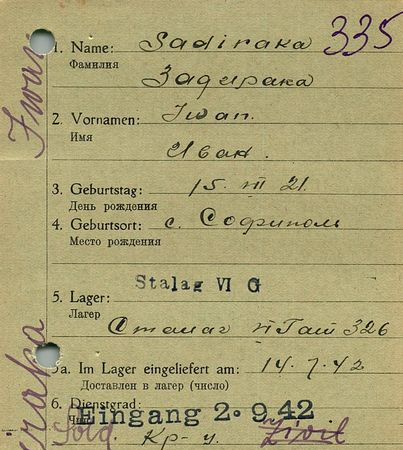 335
1. Name: Sadiraka
Фамилия
Задирака
2. Vornamen: Iwan.
Имя
Иван.
3. Geburtstag: 15. III 21.
День рождения
4. Geburtsort: с. Софиполь
Место рождения
Stalag VI G
5. Lager:
Лагер
Сталаг 326
5a. Im Lager eingeliefert am: 14.7.42
Доставлен в лагер (число)
6. Dienstgrad:
Eingang 2.9.42
Чин
Sold. Кр-ц. Zivil
Iwan
iraka